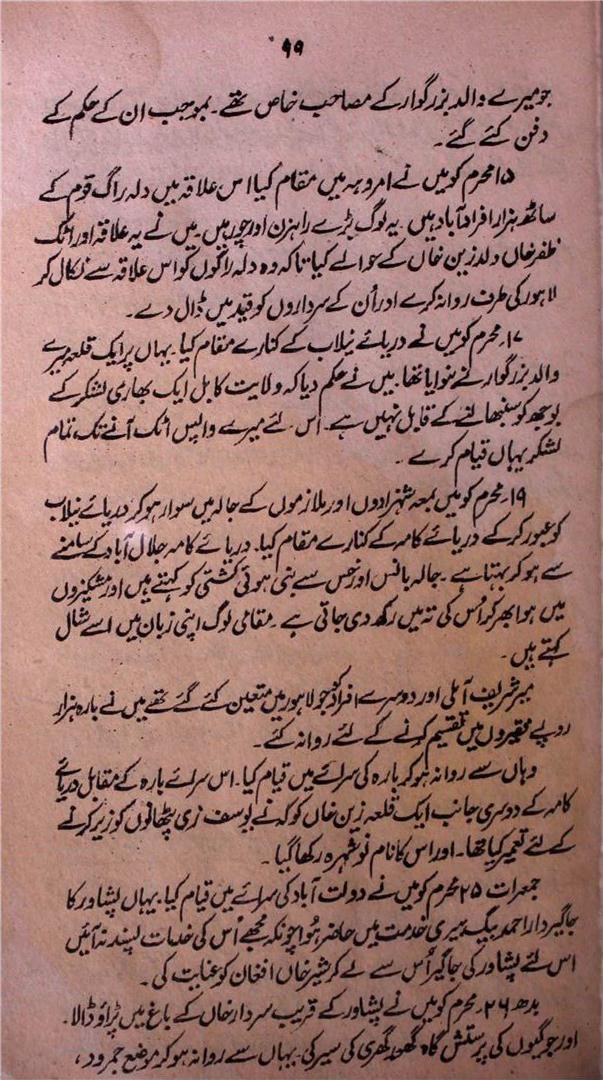 ۹۹
جو میرے والد بزرگوار کے مصاحب خاص تھے۔ بموجب ان کے حکم کے
دفن کئے گئے۔
۱۵ محرم کو میں نے امروہہ میں مقام کیا اس علاقہ میں دلہ راگ قوم کے
ساٹھ ہزار افراد آباد ہیں۔ یہ لوگ بڑے راہزن اور چور ہیں۔ میں نے یہ علاقہ اور اٹک
ظفر خاں ولد زین خاں کے حوالے کیا تاکہ وہ دلہ راگوں کو اس علاقہ سے نکال کر
لاہور کی طرف روانہ کرے اور اُن کے سرداروں کو قید میں ڈال دے۔
۱۷ محرم کو میں نے دریائے نیلاب کے کنارے مقام کیا۔ یہاں پر ایک قلعہ میرے
والد بزرگوار نے بنوایا تھا۔ میں نے حکم دیا کہ ولایت کابل ایک بھاری لشکر کے
بوجھ کو سنبھالنے کے قابل نہیں ہے۔ اس لئے میرے واپس اٹک آنے تک تمام
لشکر یہاں قیام کرے۔
۱۹ محرم کو میں بمعہ شہزادوں اور ملازموں کے جالہ میں سوار ہو کر دریائے نیلاب
کو عبور کر کے دریائے کامہ کے کنارے مقام کیا۔ دریائے کامہ جلال آباد کے سامنے
سے ہو کر بہتا ہے۔ جالہ بانس اور خس سے بنی ہوئی کشتی کو کہتے ہیں اور مشکیزوں
میں ہوا بھر کر اُس کی تہ میں رکھ دی جاتی ہے۔ مقامی لوگ اپنی زبان میں اسے شال
کہتے ہیں۔
میر شریف آملی اور دوسرے افراد کو جو لاہور میں متعین کئے گئے تھے میں نے بارہ ہزار
روپے فقیروں میں تقسیم کرنے کے لئے روانہ کئے۔
وہاں سے روانہ ہو کر بارہ کی سرائے میں قیام کیا۔ اس سرائے بارہ کے مقابل دریائے
کامہ کے دوسری جانب ایک قلعہ زین خاں کوکہ نے یوسف زی پٹھانوں کو زیر کرنے
کے لئے تعمیر کیا تھا۔ اور اس کا نام نوشہرہ رکھا گیا۔
جمعرات ۲۵ محرم کو میں نے دولت آباد کی سرائے میں قیام کیا۔ یہاں پشاور کا
جاگیردار احمد بیگ میری خدمت میں حاضر ہوا چونکہ مجھے اُس کی خدمات پسند نہ آئیں
اس لئے پشاور کی جاگیر اُس سے لے کر شیر خاں افغان کو عنایت کی۔
بدھ ۲۶ محرم کو میں نے پشاور کے قریب سردار خاں کے باغ میں پڑاؤ ڈالا۔
اور جوگیوں کی پرستش گاہ گھور کھری کی سیر کی۔ یہاں سے روانہ ہو کر موضع جمرود،